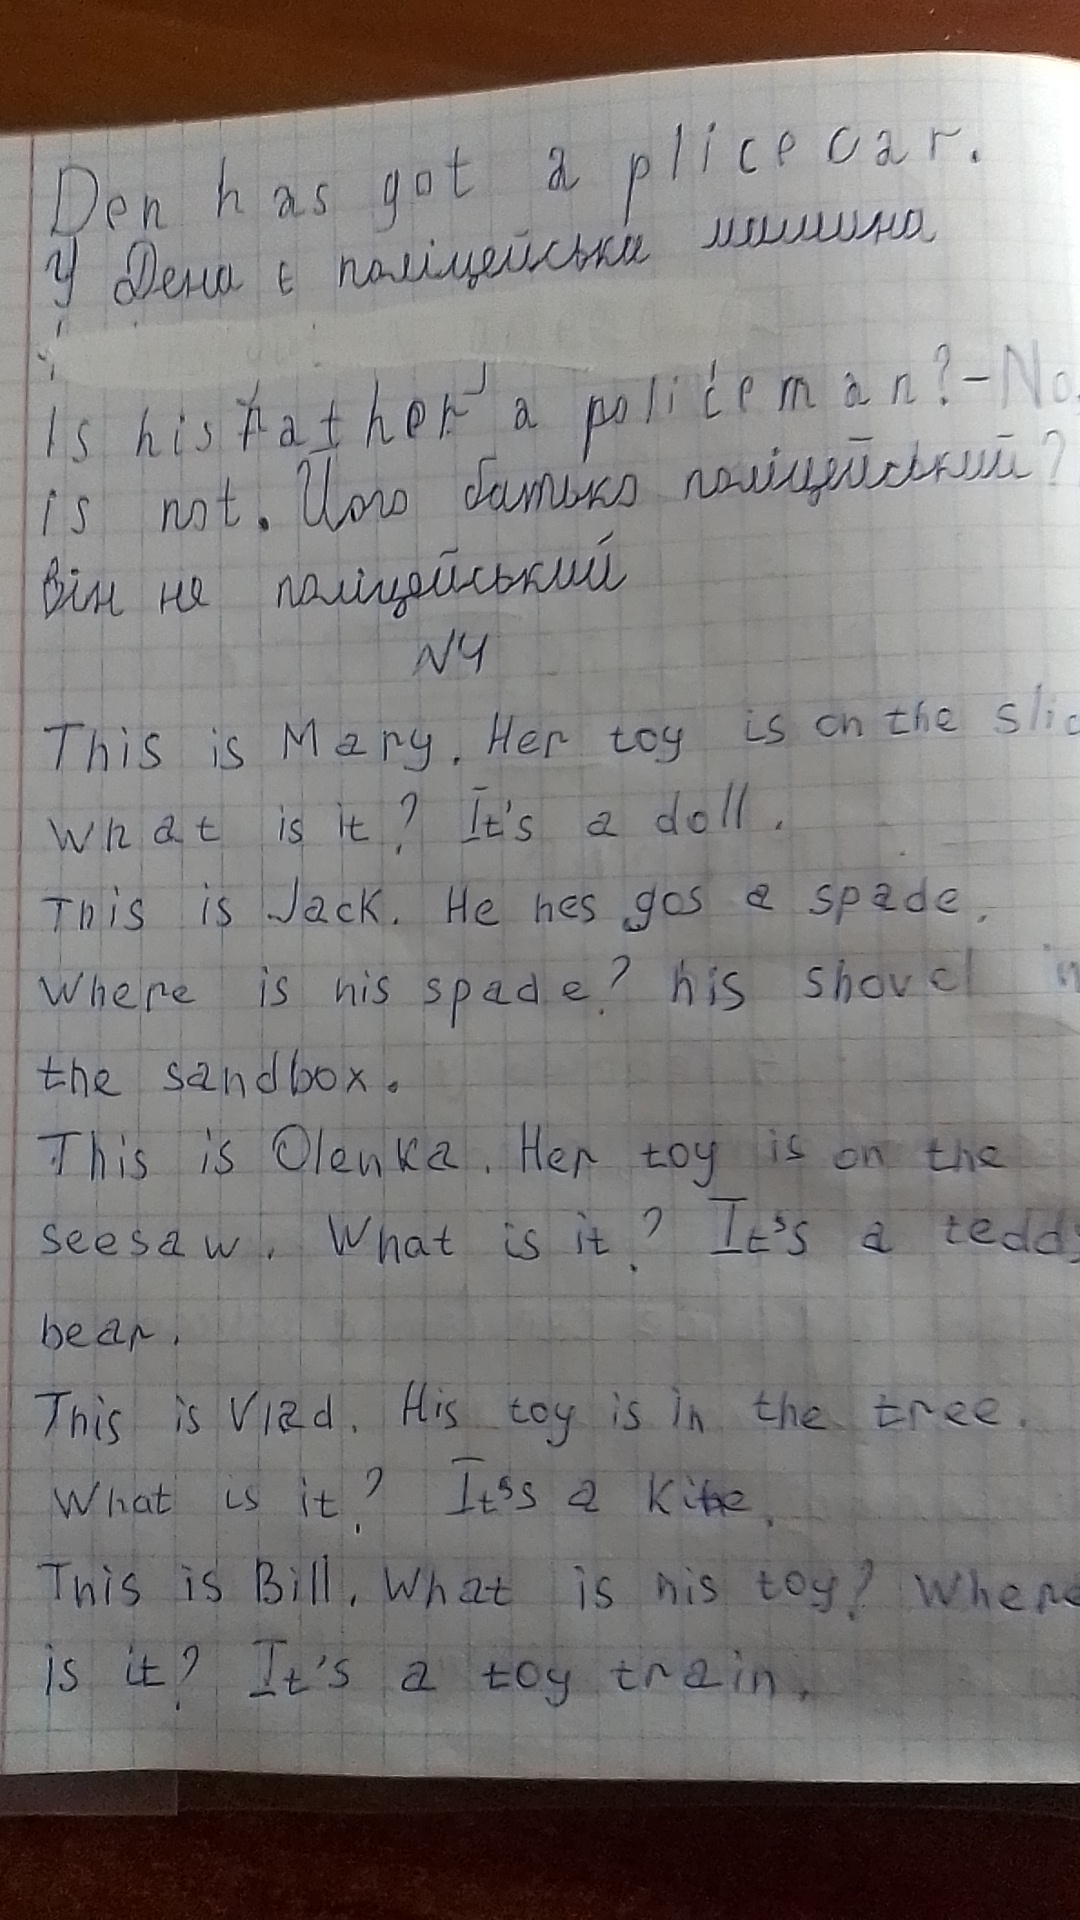 Den has got a plicecar.
У Дена є поліцейська машина
Is his father a policeman? - No,
is not. Його батько поліцейський?
Він не поліцейський
N4
This is Mary. Her toy is on the
What is it? It's a doll.
This is Jack. He hes gos a spade.
Where is his spade? his shovel in
the sandbox.
This is Olenka. Her toy is on the
seesaw. What is it? It's a teddy
bear.
This is Vlad. His toy is in the tree.
What is it? It's a kite.
This is Bill. What is his toy? Where
is it? It's a toy train.